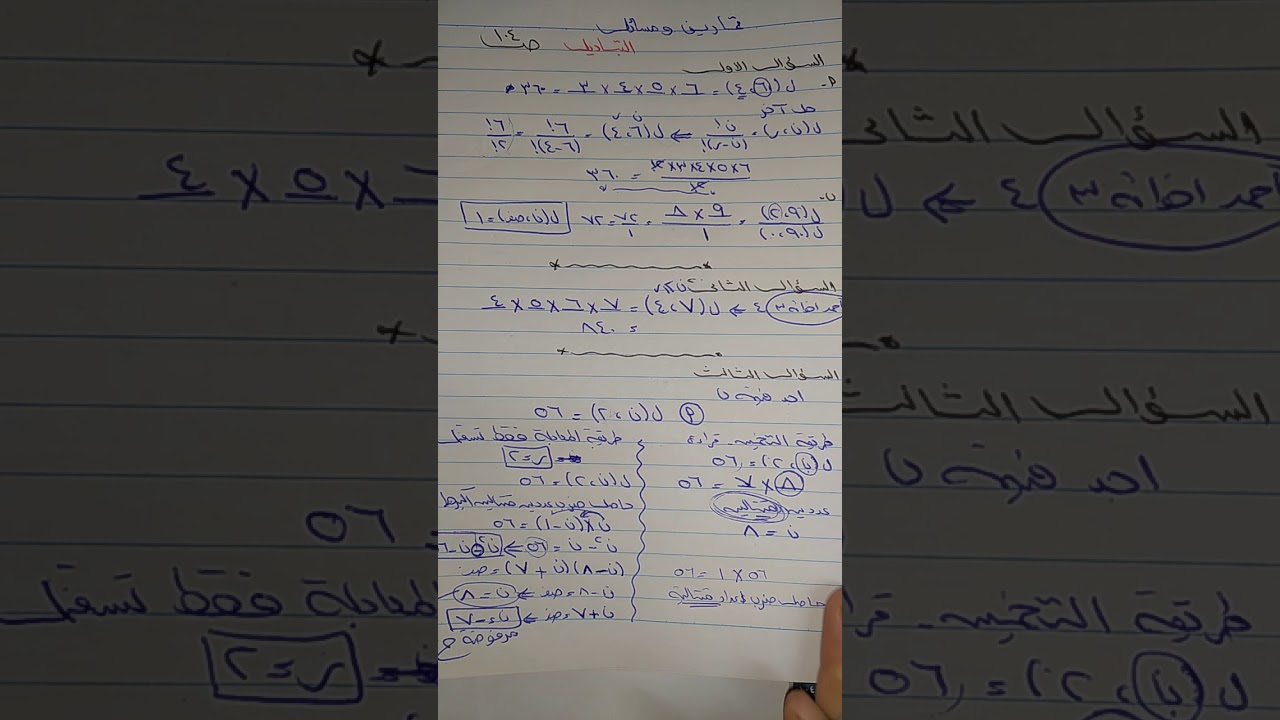 تمارين ومسائل
التباديل ص ١٠٤
السؤال الاول
٩- ل(٦،٤) = ٦ × ٥ × ٤ × ٣ = ٣٦٠
حل آخر
ل(ن،ر) = ن!/(ن-ر)! ⇐ ل(٦،٤) = ٦!/(٦-٤)! = ٦!/٢!
٦×٥×٤×٣×٢!/٢! = ٣٦٠
ب- ل(٩،٢)/ل(٩،٠) = ٩ × ٨/١ = ٧٢/١ = ٧٢ ل(ن،صفر)=١
السؤال الثاني
أحمد اضافة ٣ ٤ ⇐ ل(٧،٤) = ٧ × ٦ × ٥ × ٤
= ٨٤٠
السؤال الثالث
اجد قيمة ن
٩ ل(ن،٢) = ٥٦
طريقة التخمين
ل(ن،٢) = ٥٦
٨ × ٧ = ٥٦
عددين متتالين
ن = ٨
٥٦ × ١ = ٥٦
حاصل ضرب اعداد متتالية
طريقة المعادلة فقط تستعمل
ر = ٢
ل(ن،٢) = ٥٦
حاصل ضرب عددين متتالين
ن × (ن-١) = ٥٦
ن² - ن = ٥٦ ⇐ ن² - ن - ٥٦
(ن-٨)(ن+٧) = صفر
ن-٨ = صفر ⇐ ن = ٨
ن+٧ = صفر ⇐ ن = -٧
مرفوضة